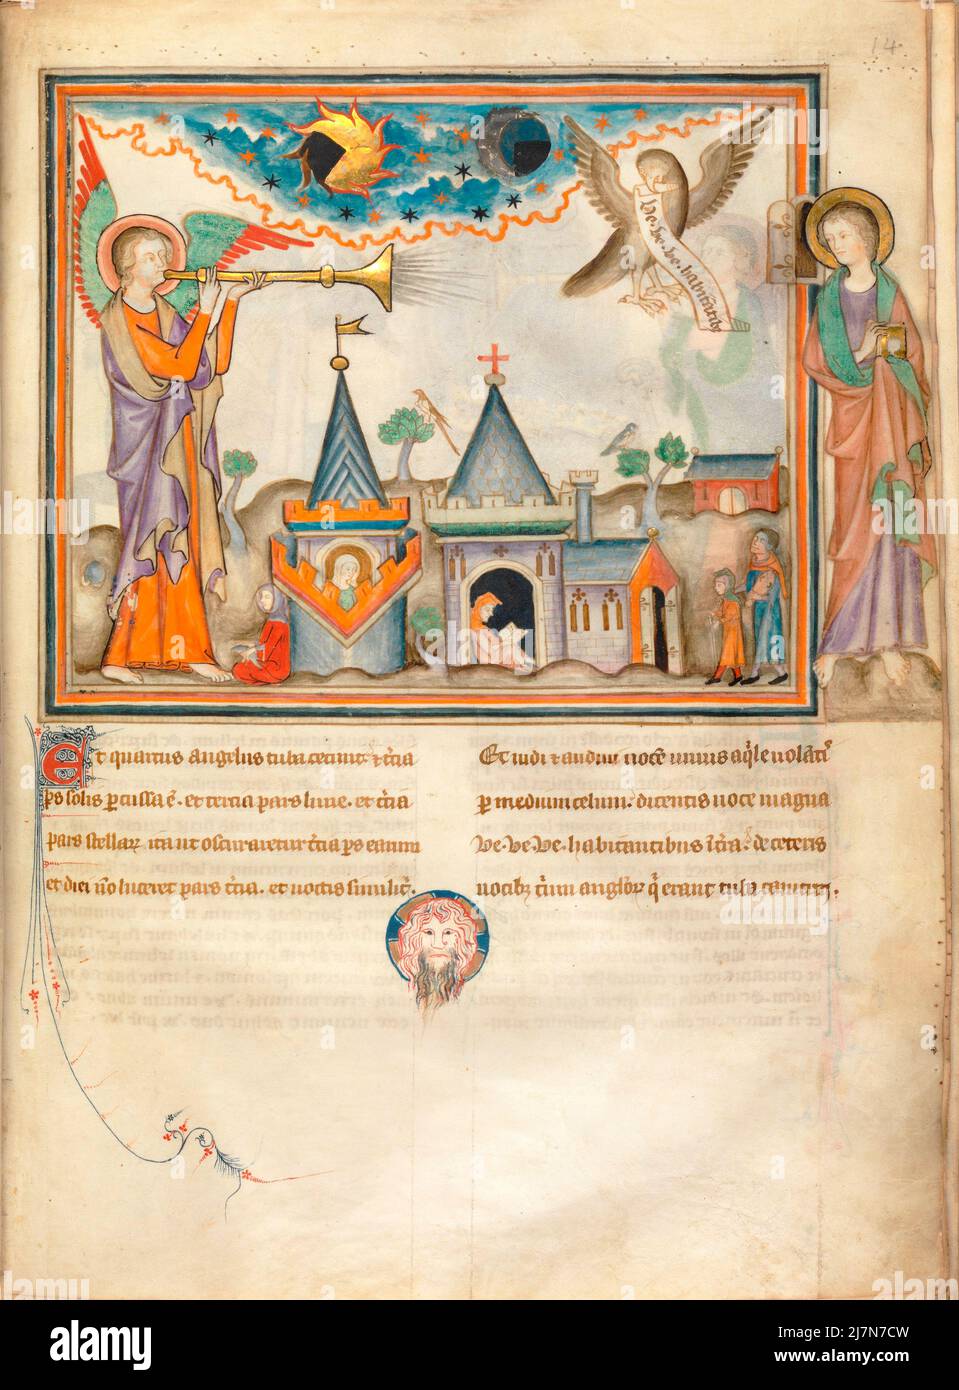 14
Ve. ve. ve. habitantibus
Et quartus angelus tuba cecinit et t͛cia
ps solis p͛cussa ē. et tercia pars lune. et t͛cia
pars stellarꝝ ita ut oscuraretur t͛cia ps eorum
et diei nō luceret pars t͛cia. et noctis similit͛.
Et uidi et audiui uocem unius aq̇le uolatꝰ
p medium celum. dicentis uoce magna
Ve. Ve. Ve. habitantibus ī t͛ra. de ceteris
uocibꝫ t͛um anglorꝝ q̄ erant tuba canituri.
alamy
Image ID: 2J7N7CW
www.alamy.com